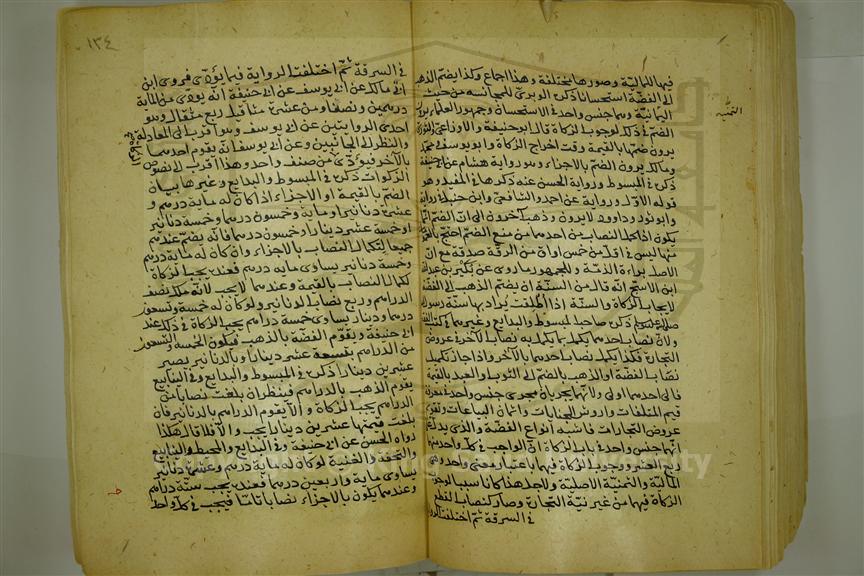 فيها المالية وصورها مختلفة وهذا اجماع وكذا يضم الذهب
الى الفضة استحسانا ذكره الوبرى للمجانسة من حيث
الثمنية
الثمانية وسما جنس واحد في الاستحسان وجمهور العلماء يرون
الضم في ذلك لوجوب الزكاة قال ابو حنيفة والاوزاعي والثورى
يرون ضمها بالقيمة وقت اخراج الزكاة وابو يوسف ومحمد
ومالك يرون الضم بالاجزاء وهو رواية هشام عن ابي حنيفة
ذكره في المبسوط ورواية الحسن عنه ذكرها في المفيد وهو
قوله الاول ورواية عن احمد والشافعي وابن حنبل في رواية
وابو ثور وداوود لا يرون وذهب آخرون الى ان الضم انما
يكون اذا كمل النصاب من احدهما من منع الضم احتج بالقول
منها ليس في اقل من خمس اواق من الرقة صدقة مع ان
الاصل براءة الذمة وللجمهور ما روى عن بكير بن عبد الله
ابن الاشج انه قال من السنة ان يضم الذهب الى الفضة
لايجاب الزكاة والسنة اذا اطلقت يراد بها سنة رسول الله
صلى الله عليه وسلم ذكره صاحب المبسوط والبدايع وغيرهما في كتب
ولان نصاب احدهما يكمل بما يكمل به نصاب الآخر في عروض
التجارة فكذا يكمل نصاب احدهما بالآخر واذا جاز تكميل
نصاب الفضة او الذهب بالضم الى الثوب والعبد بالقيمة
فالى احدهما اولى ولانهما يجريان مجرى جنس واحد في معرفة
قيم المتلفات واروش الجنايات واثمان البياعات وتقويم
عروض التجارات فاشبه انواع الفضة والذى يدل على
انهما جنس واحد في باب الزكاة ان الواجب في كل واحد منهما
ربع العشر ووجوب الزكاة فيهما باعتبار معنى واحد وهو
المالية والثمنية الاصلية ولاجل هذا كانا سببا لوجوب
الزكاة فيهما من غير نية التجارة وصار كنصاب القطع
في السرقة ثم اختلفت الرواية
١٣٤
في السرقة ثم اختلفت الرواية فيما يؤدى فروى ابن
ابي مالك عن ابي يوسف عن ابي حنيفة انه يؤدى من المائة
درهمين ونصفا ومن عشرة مثاقيل ربع مثقال وهو
احدى الروايتين عن ابي يوسف وهو اقرب الى المعادلة
والنظر الى الجانبين وعن ابي يوسف ان يقوم احدهما
بالآخر فيؤدى من صنف واحد وهذا اقرب لا نصوص
الزكوات ذكره في المبسوط والبدايع وغيرها بيان
الضم بالقيمة او الاجزاء اذا كان له مائة درهم و
عشرة دنانير او مائة وخمسون درهم وخمسة دنانير
او خمسة عشر دينارا وخمسون درهما فانه يضم عندهم
جميعا لتكمال النصاب بالاجزاء وان كان له مائة درهم
وخمسة دنانير يساوى مائة درهم فعنده يجب الزكاة
كمال النصاب بالقيمة وعندهما لا يجب لانه ملك نصف
الدراهم وربع نصاب الدنانير ولو كان له خمسة وتسعون
درهما ودينار يساوى خمسة دراهم يجب الزكاة في ذلك عند
ابي حنيفة ويقوم الفضة بالذهب فيكون الخمسة والتسعون
من الدراهم بتسعة عشر دينارا وبالدنانير يصير
عشرين دينارا ذكره في المبسوط والبدايع وفي الينابيع
يقوم الذهب بالدراهم فينظران بلغت نصابا من
الدراهم يجب الزكاة والا يقوم الدراهم بالدنانير فان
بلغت قيمتها عشرين دينارا يجب والا فلا قال هكذا
رواه الحسن عن ابي حنيفة وفي البدايع والمحيط والينابيع
والتحفة والغنية لو كان له مائة درهم وعشرة دنانير
يساوى مائة واربعين درهما فعنده يجب ستة دراهم
وعندهما يكون بالاجزاء نصابا تاما فيجب في كل واحد